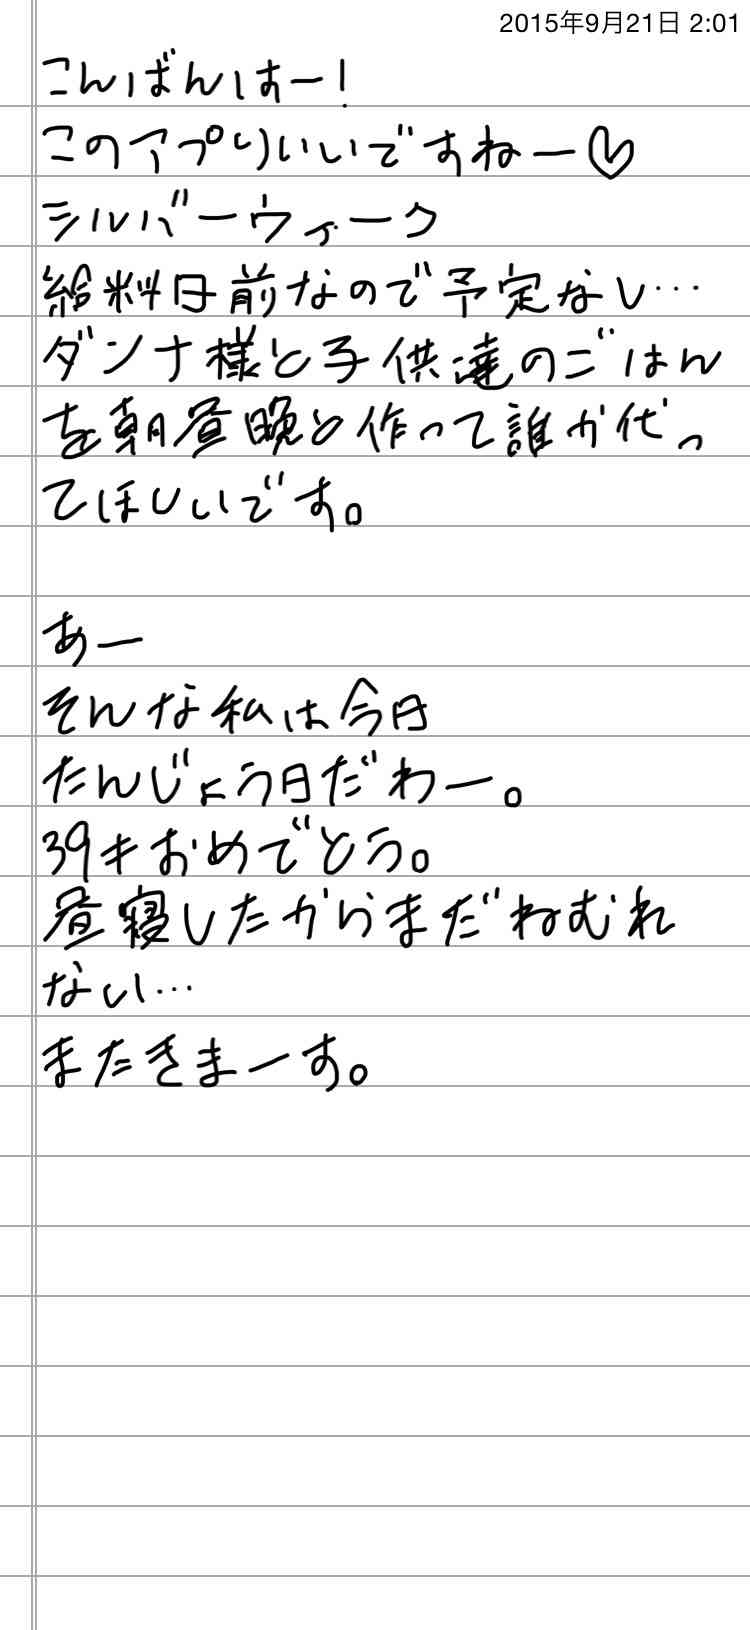 2015年9月21日 2:01
こんばんはー!
このアプリいいですねー♡
シルバーウィーク
給料日前なので予定なし…
ダンナ様と子供達のごはん
を朝昼晩と作って誰か代っ
てほしいです。
あー
そんな私は今日
たんじょう日だわー。
39才おめでとう。
昼寝したからまだねむれ
ない…
またきまーす。